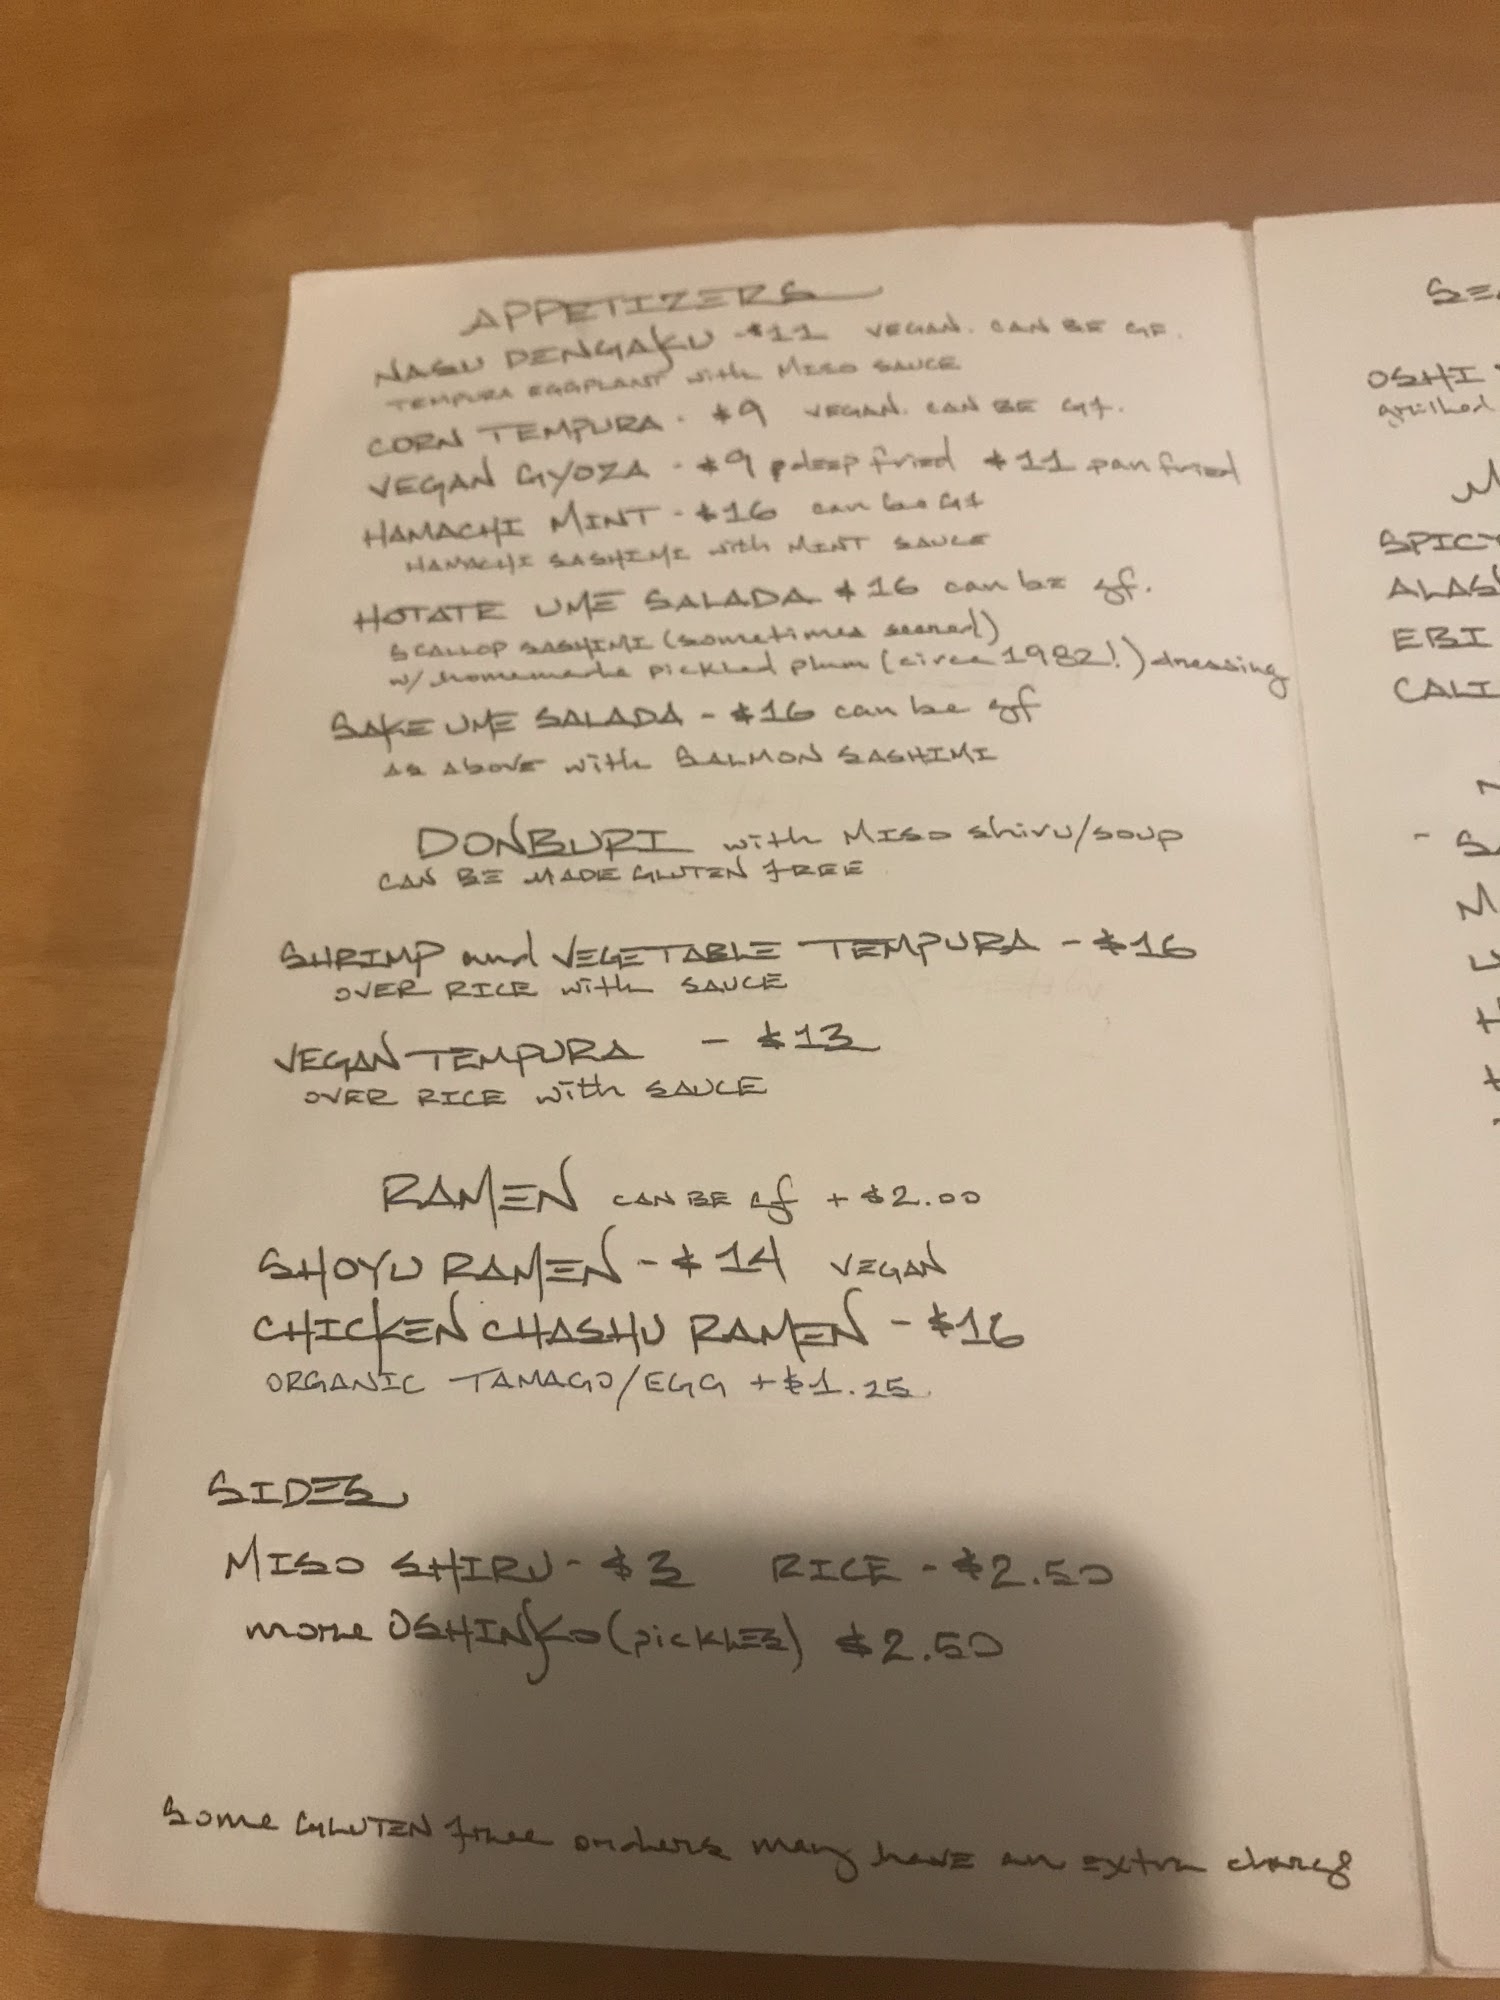 APPETIZERS
NASU DENGAKU - $11 VEGAN. CAN BE GF.
TEMPURA EGGPLANT with MISO SAUCE
CORN TEMPURA - $9 VEGAN. CAN BE Gf.
VEGAN GYOZA - $9 deep fried $11 pan fried
HAMACHI MINT - $16 can be Gf
HAMACHI SASHIMI with MINT SAUCE
HOTATE UME SALADA $16 can be gf.
SCALLOP SASHIMI (sometimes seared)
w/ homemade pickled plum (circa 1982!) dressing
SAKE UME SALADA - $16 can be gf
AS ABOVE with SALMON SASHIMI
DONBURI with MISO shiru/soup
CAN BE MADE GLUTEN FREE
SHRIMP and VEGETABLE TEMPURA - $16
OVER RICE with SAUCE
VEGAN TEMPURA - $13
OVER RICE with SAUCE
RAMEN CAN BE gf + $2.00
SHOYU RAMEN - $14 VEGAN
CHICKEN CHASHU RAMEN - $16
ORGANIC TAMAGO/EGG + $1.25
SIDES
MISO SHIRU - $3 RICE - $2.50
more OSHINKO (pickles) $2.50
Some GLUTEN free orders may have an extra charge
OSHI
grilled
SPICY
EBI